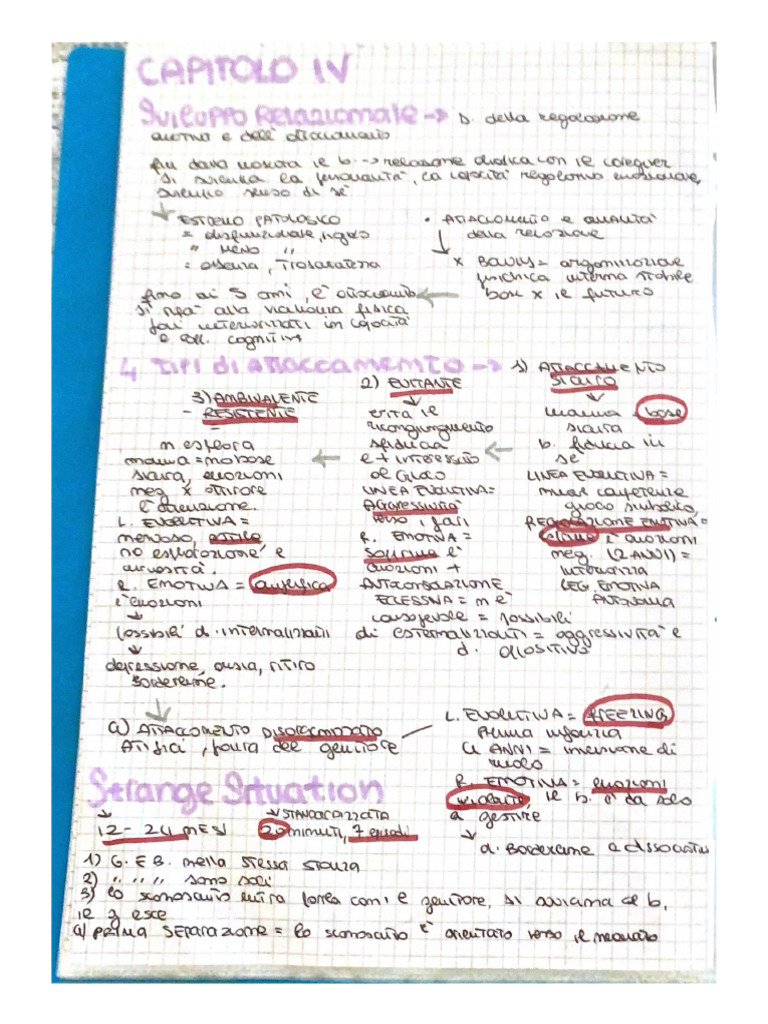 CAPITOLO IV
Sviluppo Relazionale → D. della regolazione
emotiva e dell' attaccamento
fin dalla nascita il b. → relazione diadica con il caregiver
si sviluppa la personalità, la capacità regolativa emozionale,
senso di sé
ESTREMO PATOLOGICO
= disfunzionale, rigido
" MENO "
= oscura, Trascuratezza
• Attaccamento e qualità
della relazione
x BOWLBY = organizzazione
psichica interna stabile
base x il futuro
fino ai 5 anni, l' attaccamento
si rifà alla vicinanza fisica
poi interiorizzati in capacità
e cognitive
4 Tipi di attaccamento → 1) ATTACCAMENTO
SICURO
mamma = base
sicura
b. fiducia in
sé
LINEA EVOLUTIVA =
gioco simbolico,
REGOLAZIONE EMOTIVA =
esprime l' emozioni
neg. (2 ANNI) =
interiorizza
REG. EMOTIVA
AUTONOMA
2) EVITANTE
evita il
ricongiungimento
sfiducia
e + interessato
al Gioco
LINEA EVOLUTIVA =
Aggressività
verso i pari
R. EMOTIVA =
Sopprime l'
emozioni +
AUTOCONSOLAZIONE
ECCESSIVA = n è
consapevole = possibili
d. esternalizzanti = aggressività e
d. oppositivo
3) AMBIVALENTE
- RESISTENTE
=
n esplora
mamma = no base
sicura, emozioni
neg x attirare
l' attenzione.
L. EVOLUTIVA =
nervoso, ostile
no esplorazione e
curiosità.
R. EMOTIVA = amplifica
l' emozioni
↓
possibili d. internalizzanti
↓
depressione, ansia, ritiro
borderline.
4) ATTACCAMENTO DISORGANIZZATO
Atipici, paura del genitore
L. EVOLUTIVA = FREEZING
Prima infanzia
4 ANNI = inversione di
ruolo
R. EMOTIVA = emozioni
violente, il b. è da solo
a gestire
↓
d. Borderline e dissociativi
Strange Situation
↓ STANDARDIZZATA
12 - 24 MESI 20 minuti, 7 episodi
1) G. E B. nella stessa stanza
2) " " " sono soli
3) lo sconosciuto entra parla con il genitore, si avvicina al b,
il g esce
4) PRIMA SEPARAZIONE = lo sconosciuto è orientato verso il neonato